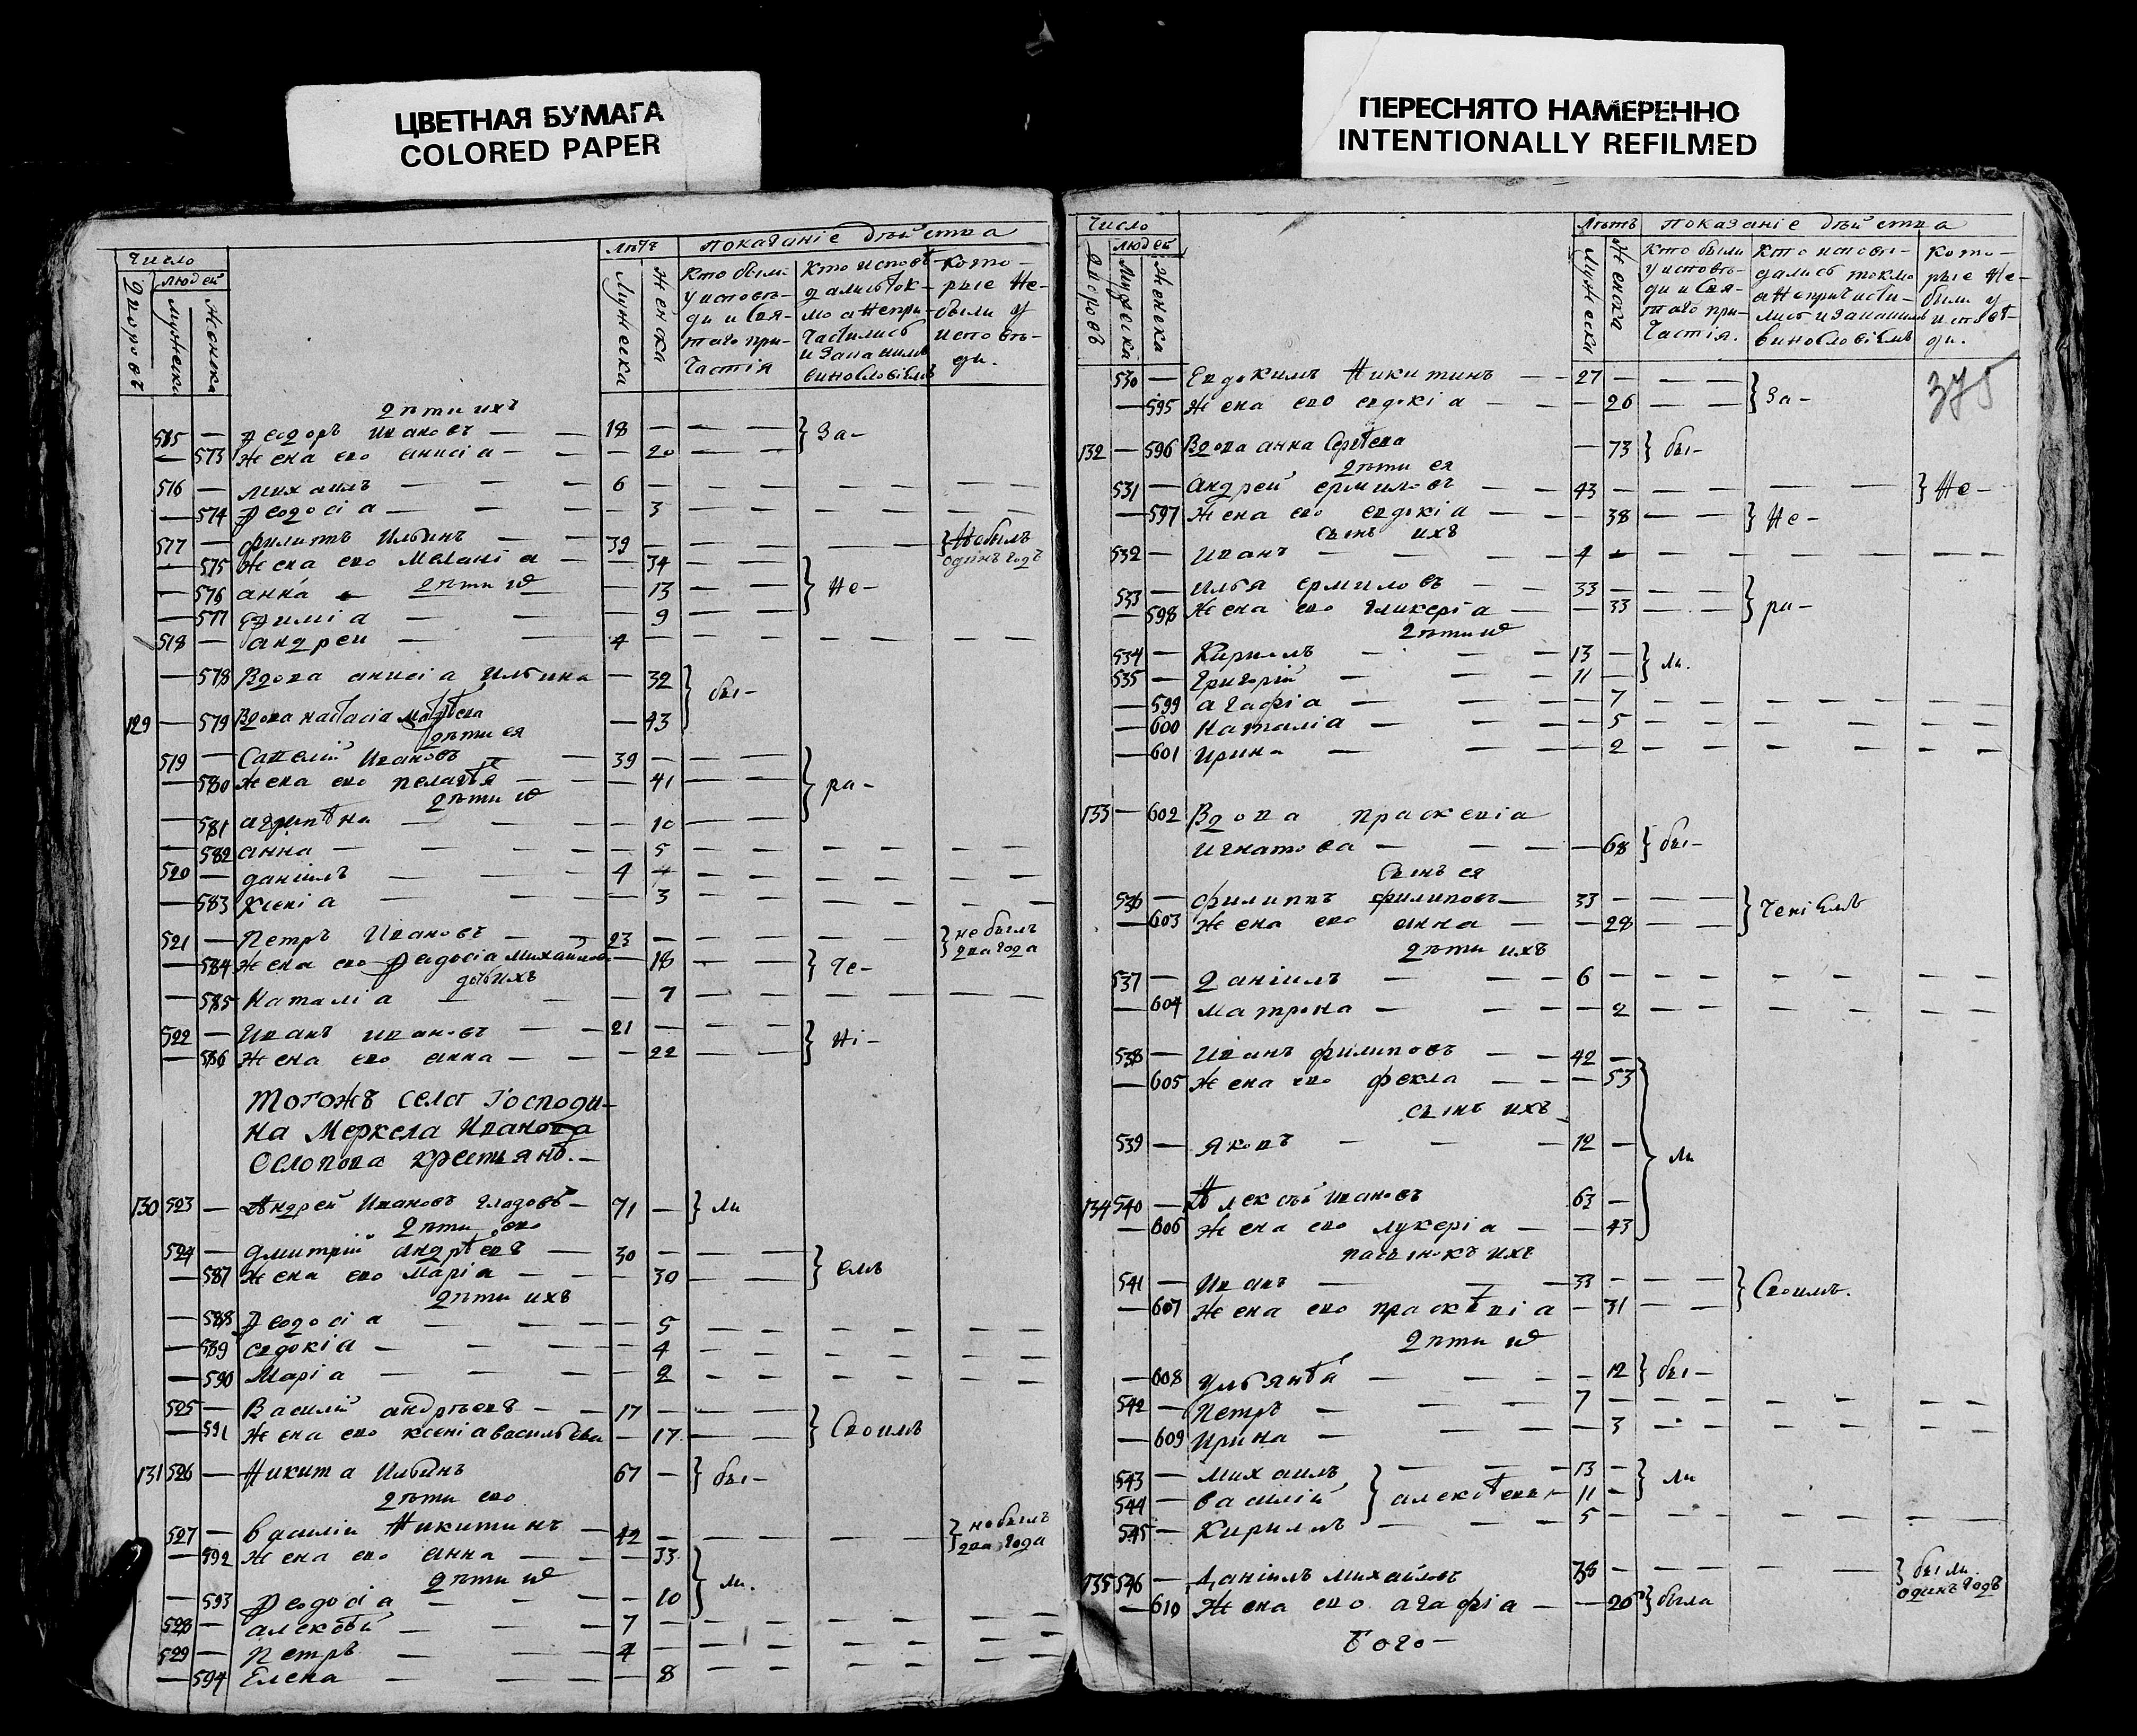 ЦВЕТНАЯ БУМАГА
COLORED PAPER
ПЕРЕСНЯТО НАМЕРЕННО
INTENTIONALLY REFILMED
Число Лѣтъ показаніе дѣйства
дворовъ людей мужеска женска Мужеска Женска
Кто были у исповѣди и святаго причастія
кто исповѣдались токмо а непричастились и запакимъ винословіемъ
которые не были у исповѣди.
дѣти ихъ
515 — Ѳеодоръ Ивановъ — — 18 — — — } За-
— 573 Жена ево анисіа — — — 20 — —
516 — михаилъ — — — 6 — — — — — — —
— 574 Ѳеодосіа — — — — 3 — — — — — —
517 — филипъ Ильинъ — 39 — — — — — } Небылъ одинъ годъ
— 575 Жена ево Меланіа — — 34 — —
дѣти их
— 576 анна — — — 13 — — } Не-
— 577 Еѳиміа — — — — 9
518 — андреи — — 4 — — — — — — —
— 578 Вдова анисіа Ильина — 32 } бы-
129 — 579 Вдова настасіа матѣева — 43
дѣти ея
519 — Савелій Ивановъ — 39 — — —
— 580 Жена ево пелагѣя — — — 41 — — } ра-
дѣти их
— 581 агрипѣна — — — — 10 — —
— 582 анна — — — — — 5 — — — — — —
520 — даніилъ — — — 4 — — — — — — —
— 583 Ксеніа — — — — 3 — — — — — —
521 — Петръ Ивановъ — — 23 — — — — — } небылъ два года
— 584 Жена ево Ѳедосіа михаилова — 18 — — } че-
дочь ихъ
— 585 Наталіа — — — 7 — — — — — —
522 — Иванъ ивановъ — — 21 — — — } ні-
— 586 Жена ево анна — — — 22 — —
Тогожъ села Господи-
на Меркела Иванова
Ослопова крестьянѣ. —
130 523 — Андрей Ивановъ гладовъ — 71 — } ли
дѣти ево
524 — дмитрій андрѣевъ — 30 — — —
— 587 Жена ево Маріа — — — 30 — — } емъ
дѣти ихъ
— 588 Ѳеодосіа — — — — 5 — — — — — —
— 589 евдокіа — — — — 4 — — — — — —
— 590 Маріа — — — — 2 — — — — — —
525 — Василій андрѣевъ — — 17 — — —
— 591 Жена ево ксеніа васильева — 17 — — } Своимъ
131 526 — Никита Ильинъ 67 — } бы-
дѣти ево
527 — василіи Никитинъ — 42 — — — — — } небылъ два года
— 592 Жена ево анна — — — 33
дѣти их
— 593 Ѳеодосіа — — — — 10 } ли.
528 — алексѣй — — — 7 — — — — — — —
529 — Петръ — — — 4 — — — — — — —
— 594 Елена — — — — 8 — — — — — —
Число Лѣтъ показаніе дѣйства
дворовъ людей Мужеска Женска Мужеска Женска
Кто были у исповѣди и святаго причастія.
Кто исповѣдались токмо а непричастились изапакимъ винословіемъ
которые небыли у исповѣди.
375
530 — Евдокимъ Никитинъ — — 27 — — — } За-
— 595 Жена ево евдокіа — — — 26 — —
132 — 596 Вдова анна Сергѣева — 73 } бы-
дѣти ея
531 — андрей ермиловъ — — 43 — — — — — } Не-
— 597 Жена ево евдокіа — — — 38 — — } Не-
сынъ ихъ
532 — Иванъ — — — 4 — — — — — — —
533 — Илья ермиловъ — 33 — — —
— 598 Жена ево гликеріа — — 33 — — } ра-
дѣти их
534 — Кирилъ — — — 13 — } ли.
535 — Григорій — — — 11 —
— 599 агафіа — — — — 7 — — — — — —
— 600 Наталіа — — — — 5 — — — — — —
— 601 Ирина — — — — 2 — — — — — —
133 — 602 Вдова праскевіа
Игнатова — — — — 68 } бы-
Сынъ ея
536 — филиппъ филиповъ — 33 — — —
— 603 Жена ево анна — — 28 — — } ченіемъ
дѣти ихъ
537 — даніилъ — — — 6 — — — — — — —
— 604 матрона — — — — 2 — — — — — —
538 — Иванъ филиповъ — — 42 —
— 605 Жена ево фекла — — — 53
сынъ ихъ
539 — яковъ — — — 12 — } ли
134 540 — Алексѣй ивановъ 63 —
— 606 Жена ево лукеріа — — 43
пасынокъ ихъ
541 — Иванъ — — — 33 — — —
— 607 Жена ево праскѣвіа — 31 — — } Своимъ.
дѣти их
— 608 Ульянѣа — — — — 12 } бы-
542 — Петръ — — — 7 — — — — — — —
— 609 Ирина — — — — 3 — — — — — —
543 — михаилъ — — — 13 — } ли
544 — василій } алексѣевы — 11 —
545 — Кириллъ — — — 5 — — — — — — —
135 546 — Даніилъ михайловъ 38 — — — — — } были одинъ годъ
— 610 Жена ево агафіа — — 26 } была
Бого-